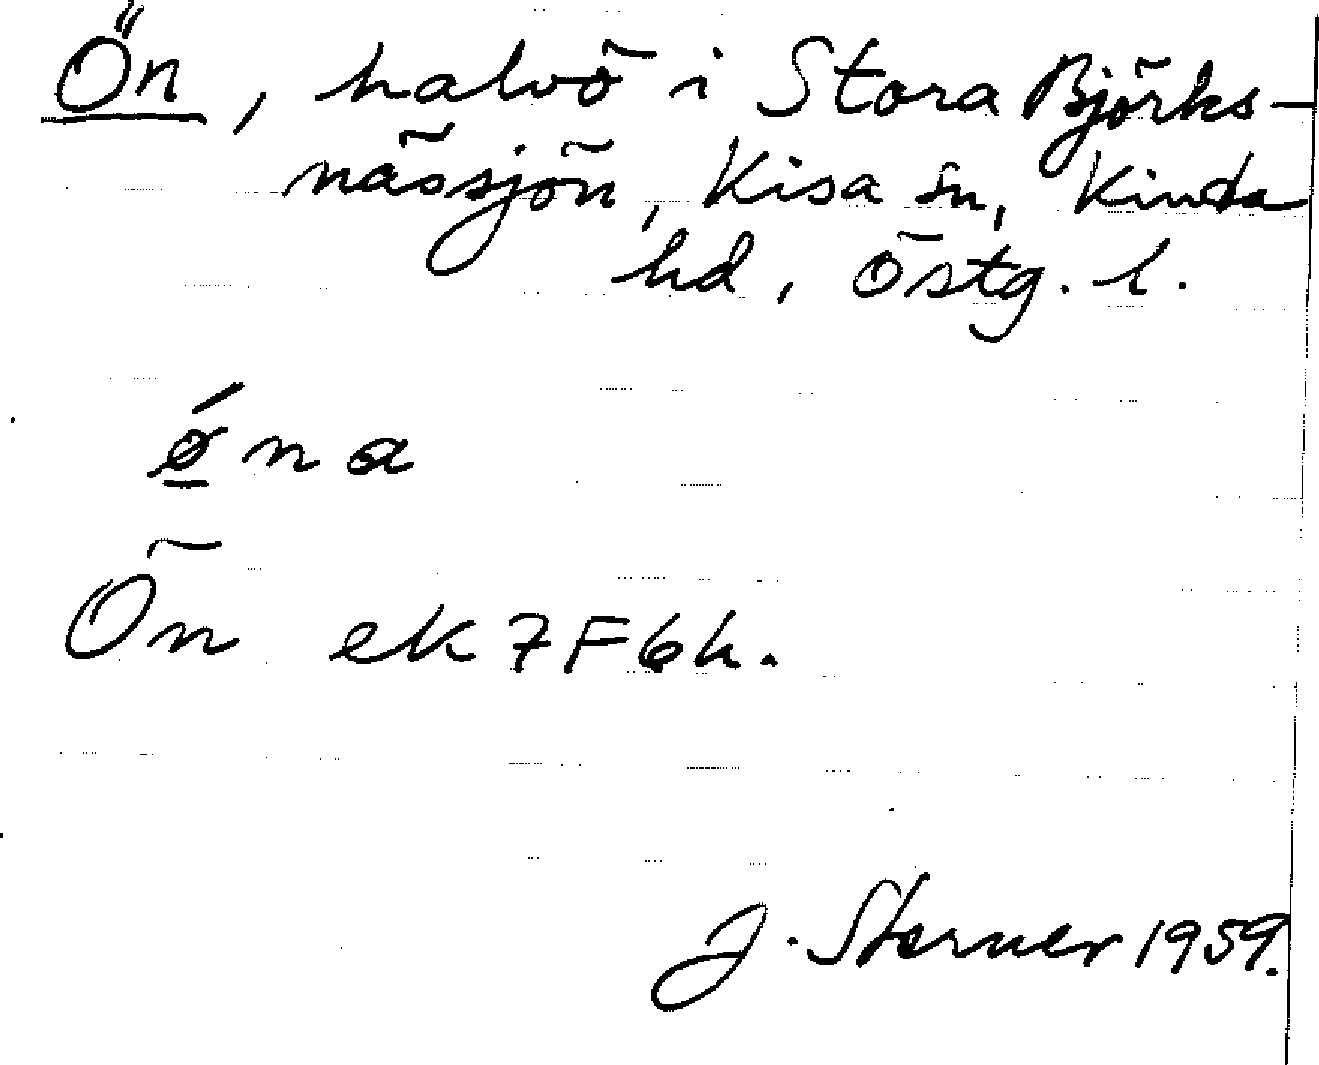 Ön, halvö i Stora Björks-
nässjön, Kisa sn, Kinda
hd, Östg. l.
ǿ̠na
Ön ek 7F6h.
J. Sterner 1959.